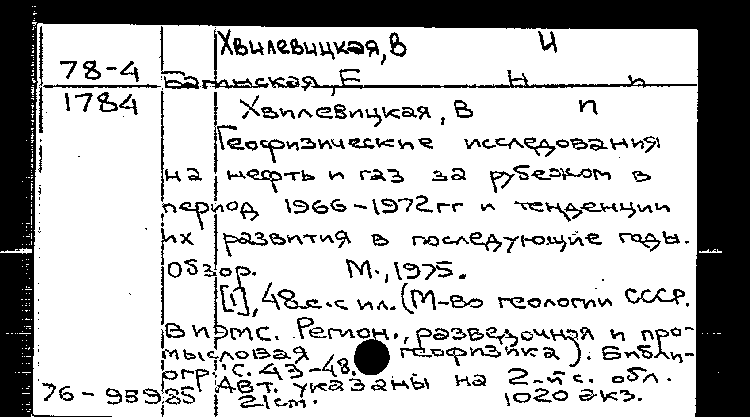 Хвилевицкая, В И
78-4
Багинская, Е Н n
1784 Хвилевицкая, В п
Геофизические исследования
на нефть и газ за рубежом в
период 1966-1972гг и тенденции
их развития в последующие годы.
Обзор. М., 1975.
[1], 48 с. с ил. (М-во геологии СССР.
ВИЭМС. Регион., разведочная и про-
мысловая геофизика). Библи-
огр. с. 43-48.
Авт. указаны на 2-й с. обл.
76-95985 21 см. 1020 экз.